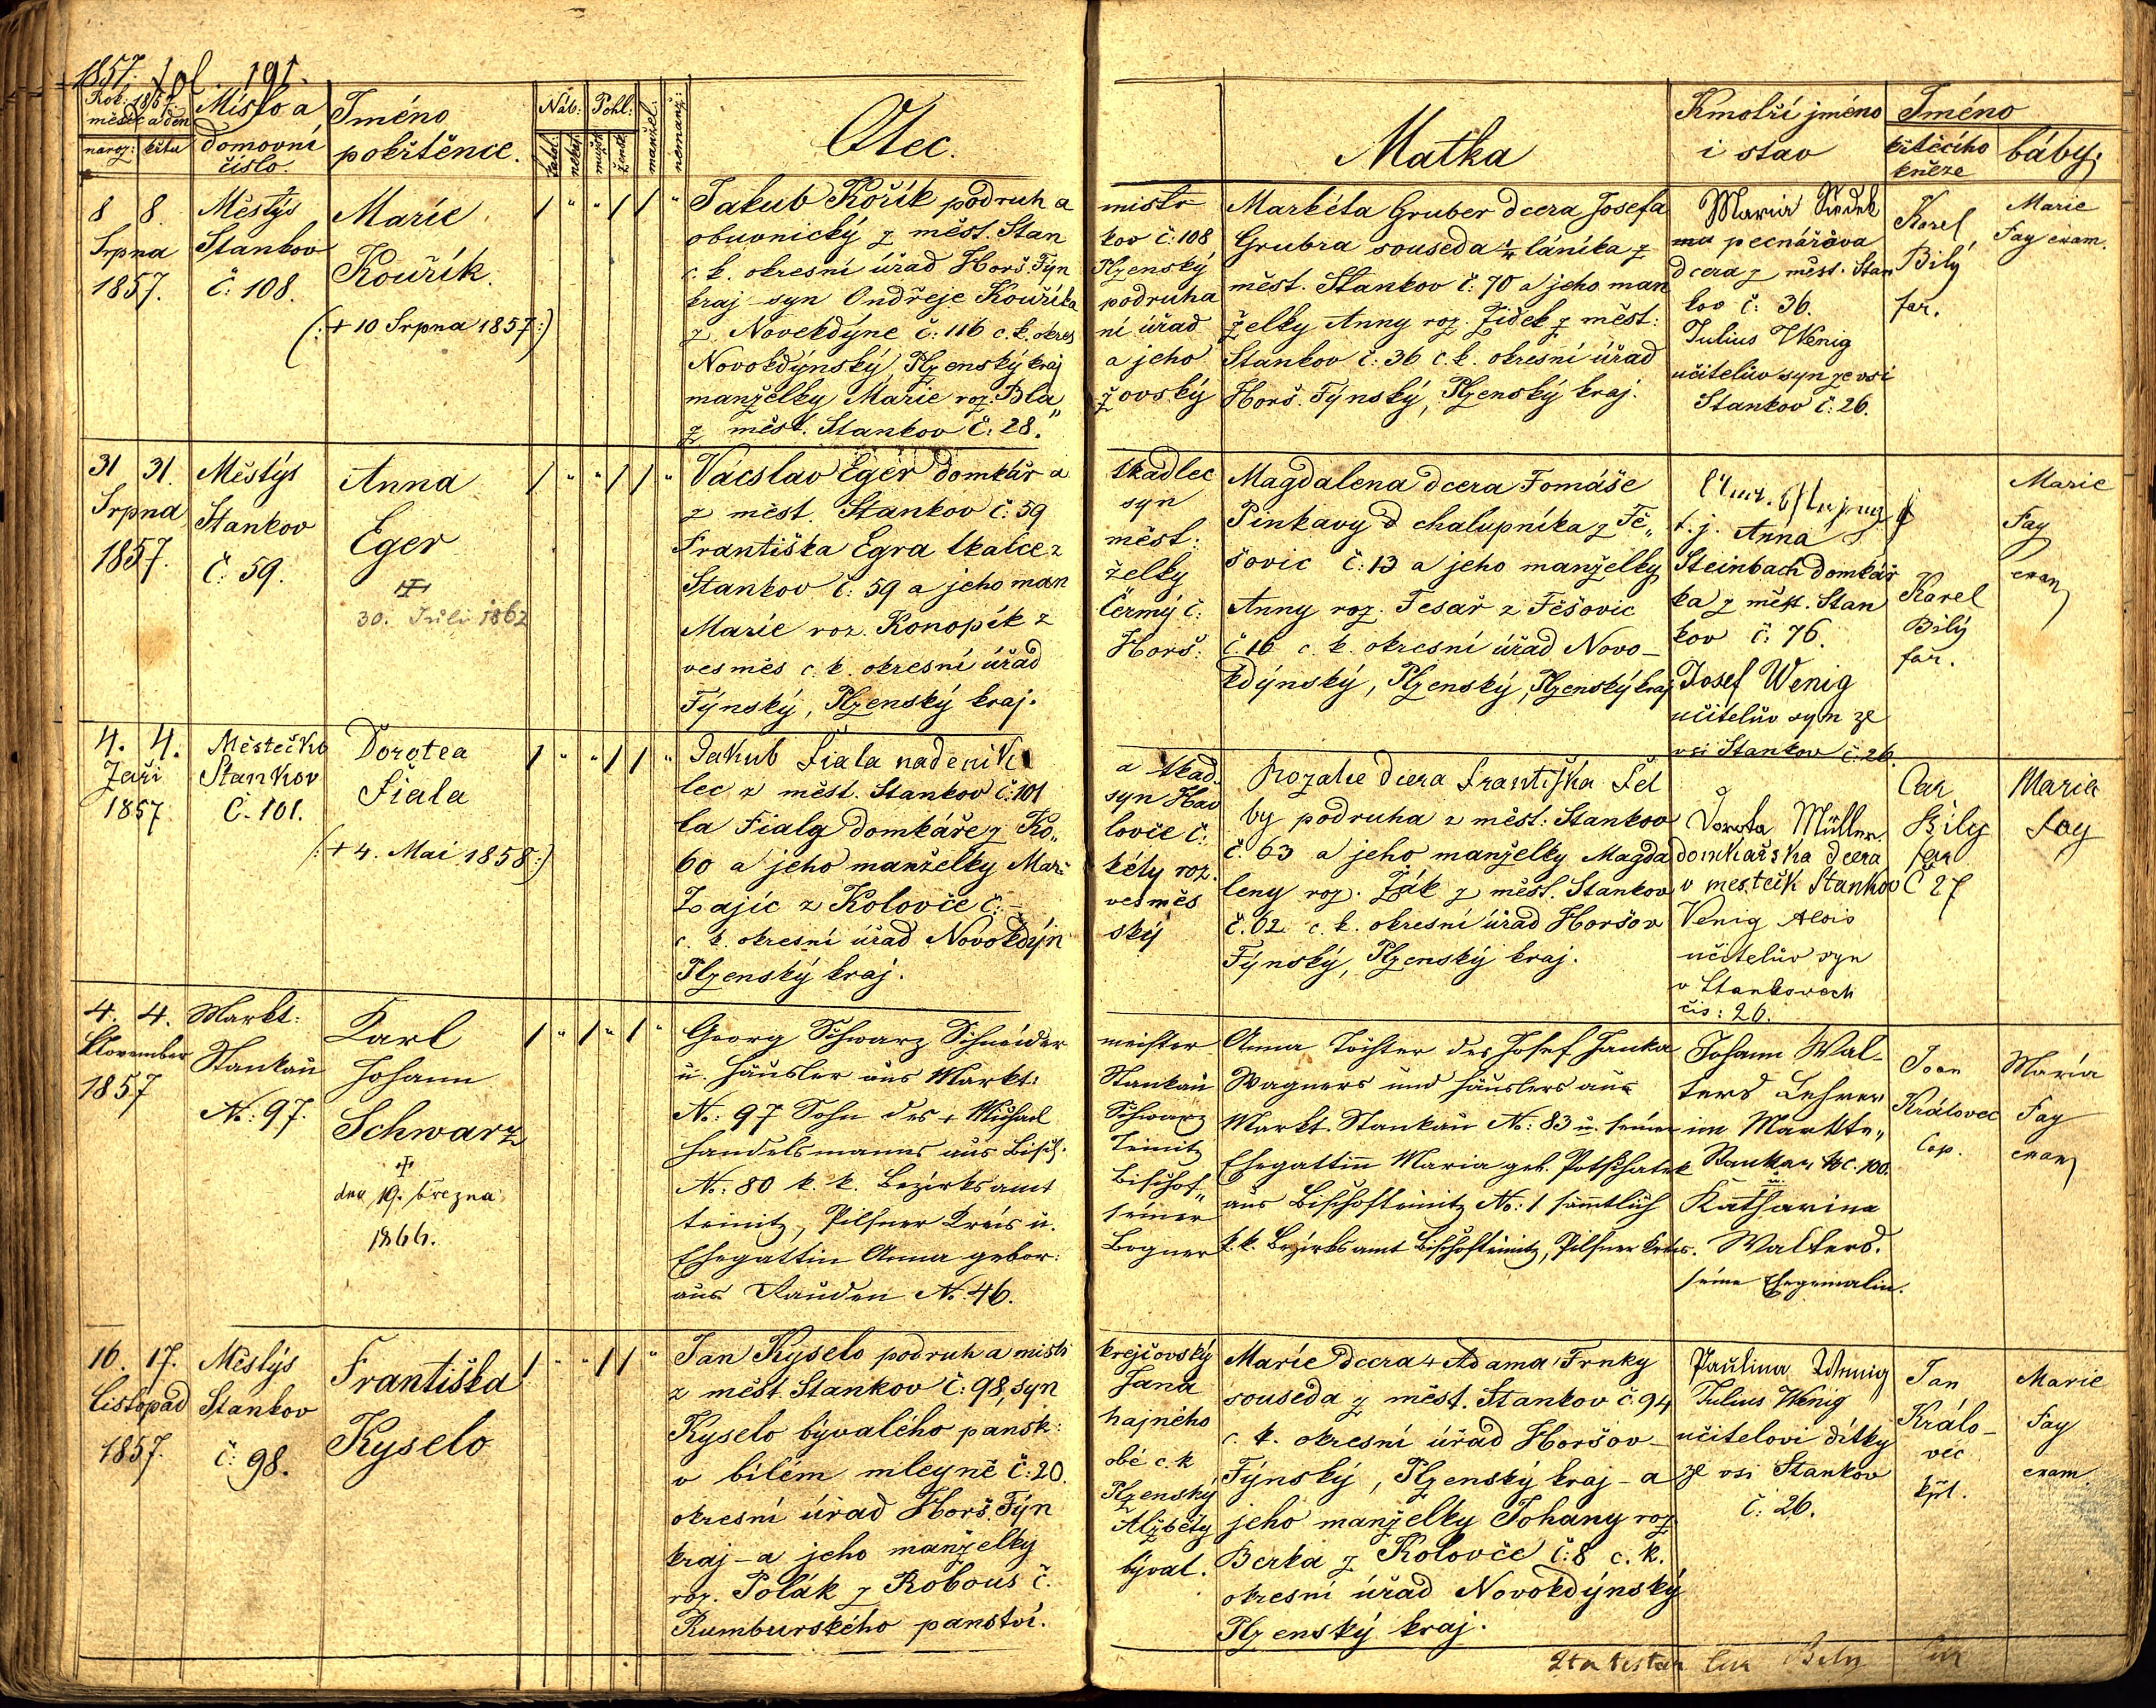 1857. fol. 191.
Rok: 1857.
měsíc a den
naroz: křtu
Místo a
domovní
číslo.
Jméno
pokřtěnce.
Náb: Pohl:
katol.
nekat.
mužsk.
žensk.
manžel:
nemanž:
Otec.
Matka
Kmotří jméno
i stav
Jméno
křtěcího
kněze
báby.
8 8.
Srpna
1857.
Městýs
Stankov
č: 108.
Marie
Kouřík.
(:+ 10 Srpna 1857:)
/ " " / / "
Jakub Kořík podruh a
obuvnický z měst. Stan
c. k. okresní úřad Horš. Týn
kraj syn Ondřeje Kouříka
z Novekdýne č: 116 c. k. okres
Novokdýnský, Plzenský kraj
manželky Marie roz. Bla„
z měst. Stankov č: 28.
mistr
kov č: 108
Plzenský
podruha
ní úřad
a jeho
žovský
Markéta Gruber dcera Josefa
Grubra souseda ¼ láníka z
měst. Stankov č: 70 a jeho man
želky Anny roz. Žiďek z měst:
Stankov č: 36 c. k. okresní úřad
Horš. Týnský, Plzenský kraj.
Maria
dcera z měst. Stan
kov č: 36.
Julius Wenig
učitelův syn ze vsi
Stankov č: 26.
Karel
Bílý
far.
Marie
Fay exam.
31 31.
Srpna
1857.
Městýs
Stankov
č: 59.
Anna
Eger
30. Juli 1862
/ " " / / "
Vácslav Eger domkář a
z měst. Stankov č: 59
Františka Egra tkalce z
Stankov č: 59 a jeho man
Marie roz. Konopík z
vesměs c. k. okresní úřad
Týnský, Plzenský kraj.
tkadlec
syn
měst:
želky
Čermý č:
Horš:
Magdalena dcera Tomáše
Pinkavy d chalupníka z Tě„
šovic č: 13 a jeho manželky
Anny roz. Tesař z Těšovic
č. 16 c. k. okresní úřad Novo-
kdýnský, Plzenský, Plzenský kraj
t. j. Anna
Steinbach domkář
ka z měst. Stan
kov č: 76.
Josef Wenig
učitelův syn ze
vsi Stankov č: 26.
Karel
Bílý
far.
Marie
Fay
exam
4. 4.
Zaři
1857
Městečko
Stankov
Č. 101.
Dorotea
Fiala
(:+ 4. Mai 1858:)
/ " " / / "
Jakub Fiala nadeník
lec z měst. Stankov č: 101
la Fialy domkáře z Ko„
60 a jeho manželky Mar
Zajíc z Kolovče č: -
c. k. okresní úřad Novokdýn
Plzenský kraj.
a tkad.
syn Hav
lovče č:
kéty roz.
vesměs
ský
Rozalie dcera Františka Fel
by podruha z měst: Stankov
č. 63 a jeho manželky Magda
leny roz. Žák z měst. Stankov
č. 62 c. k. okresní úřad Horšov
Týnský, Plzenský kraj.
Dorota Müller
domkařska dcera
v mestečk Stankov Č 27
Venig Alois
učitelův syn
v Stankovech
čis: 26.
Car
Bily
far
Marie
Fay
4. 4.
November
1857
Markt:
Stankau
No: 97.
Karl
Johann
Schwarz
dne 19. března
1866.
/ " / " / "
Georg Schwarz Schneider
u. Häusler aus Markt:
No: 97 Sohn des + Michael
Handelsmanns aus Bisch.
No: 80 k. k. Bezirksamt
teinitz, Pilsner Kreis u.
Ehegattin Anna gebor:
aus Rauden No. 46.
meister
Stankau
Schwarz
Teinitz
Bischof„
seiner
Bogner
Anna Tochter des Josef Janka
Wagners und Häuslers aus
Markt. Stankau No: 83 u. seiner
Ehegattin Maria geb.
aus Bischofteinitz No: 1 sämtlich
k. k. Bezirksamt Bischofteinitz, Pilsner Kreis.
Johann Wal-
terd Lehrer
im Markte„
Stankau NC. 100.
Katharina
Walterd.
seine Ehegemalin.
Joan
Královec
Cop.
Maria
Fay
exam
16. 17.
Listopad
1857.
Městýs
Stankov
č: 98.
Františka
Kyselo
/ " " / / "
Jan Kyselo podruh a mistr
z měst. Stankov č: 98, syn
Kyselo bývalého pansk:
v bílém mleyně č: 20.
okresní úřad Horš. Týn
kraj - a jeho manželky
roz. Polák z Robous č.
Rumburského panství.
krejčovský
Jana
hajného
obé c. k
Plzenský
Alžběty
býval.
Marie dcera + Adama Trnky
souseda z měst. Stankov č. 94
c. k. okresní úřad Horšov-
Týnský, Plzenský kraj - a
jeho manželky Johany roz
Berka z Kolovče č: 8 c. k.
okresní úřad Novokdýnský
Plzenský kraj.
Paulina Wenig
Julius Wenig
učitelovi dítky
ze vsi Stankov
č: 26.
Jan
Králo-
vec
kpl.
Marie
Fay
exam